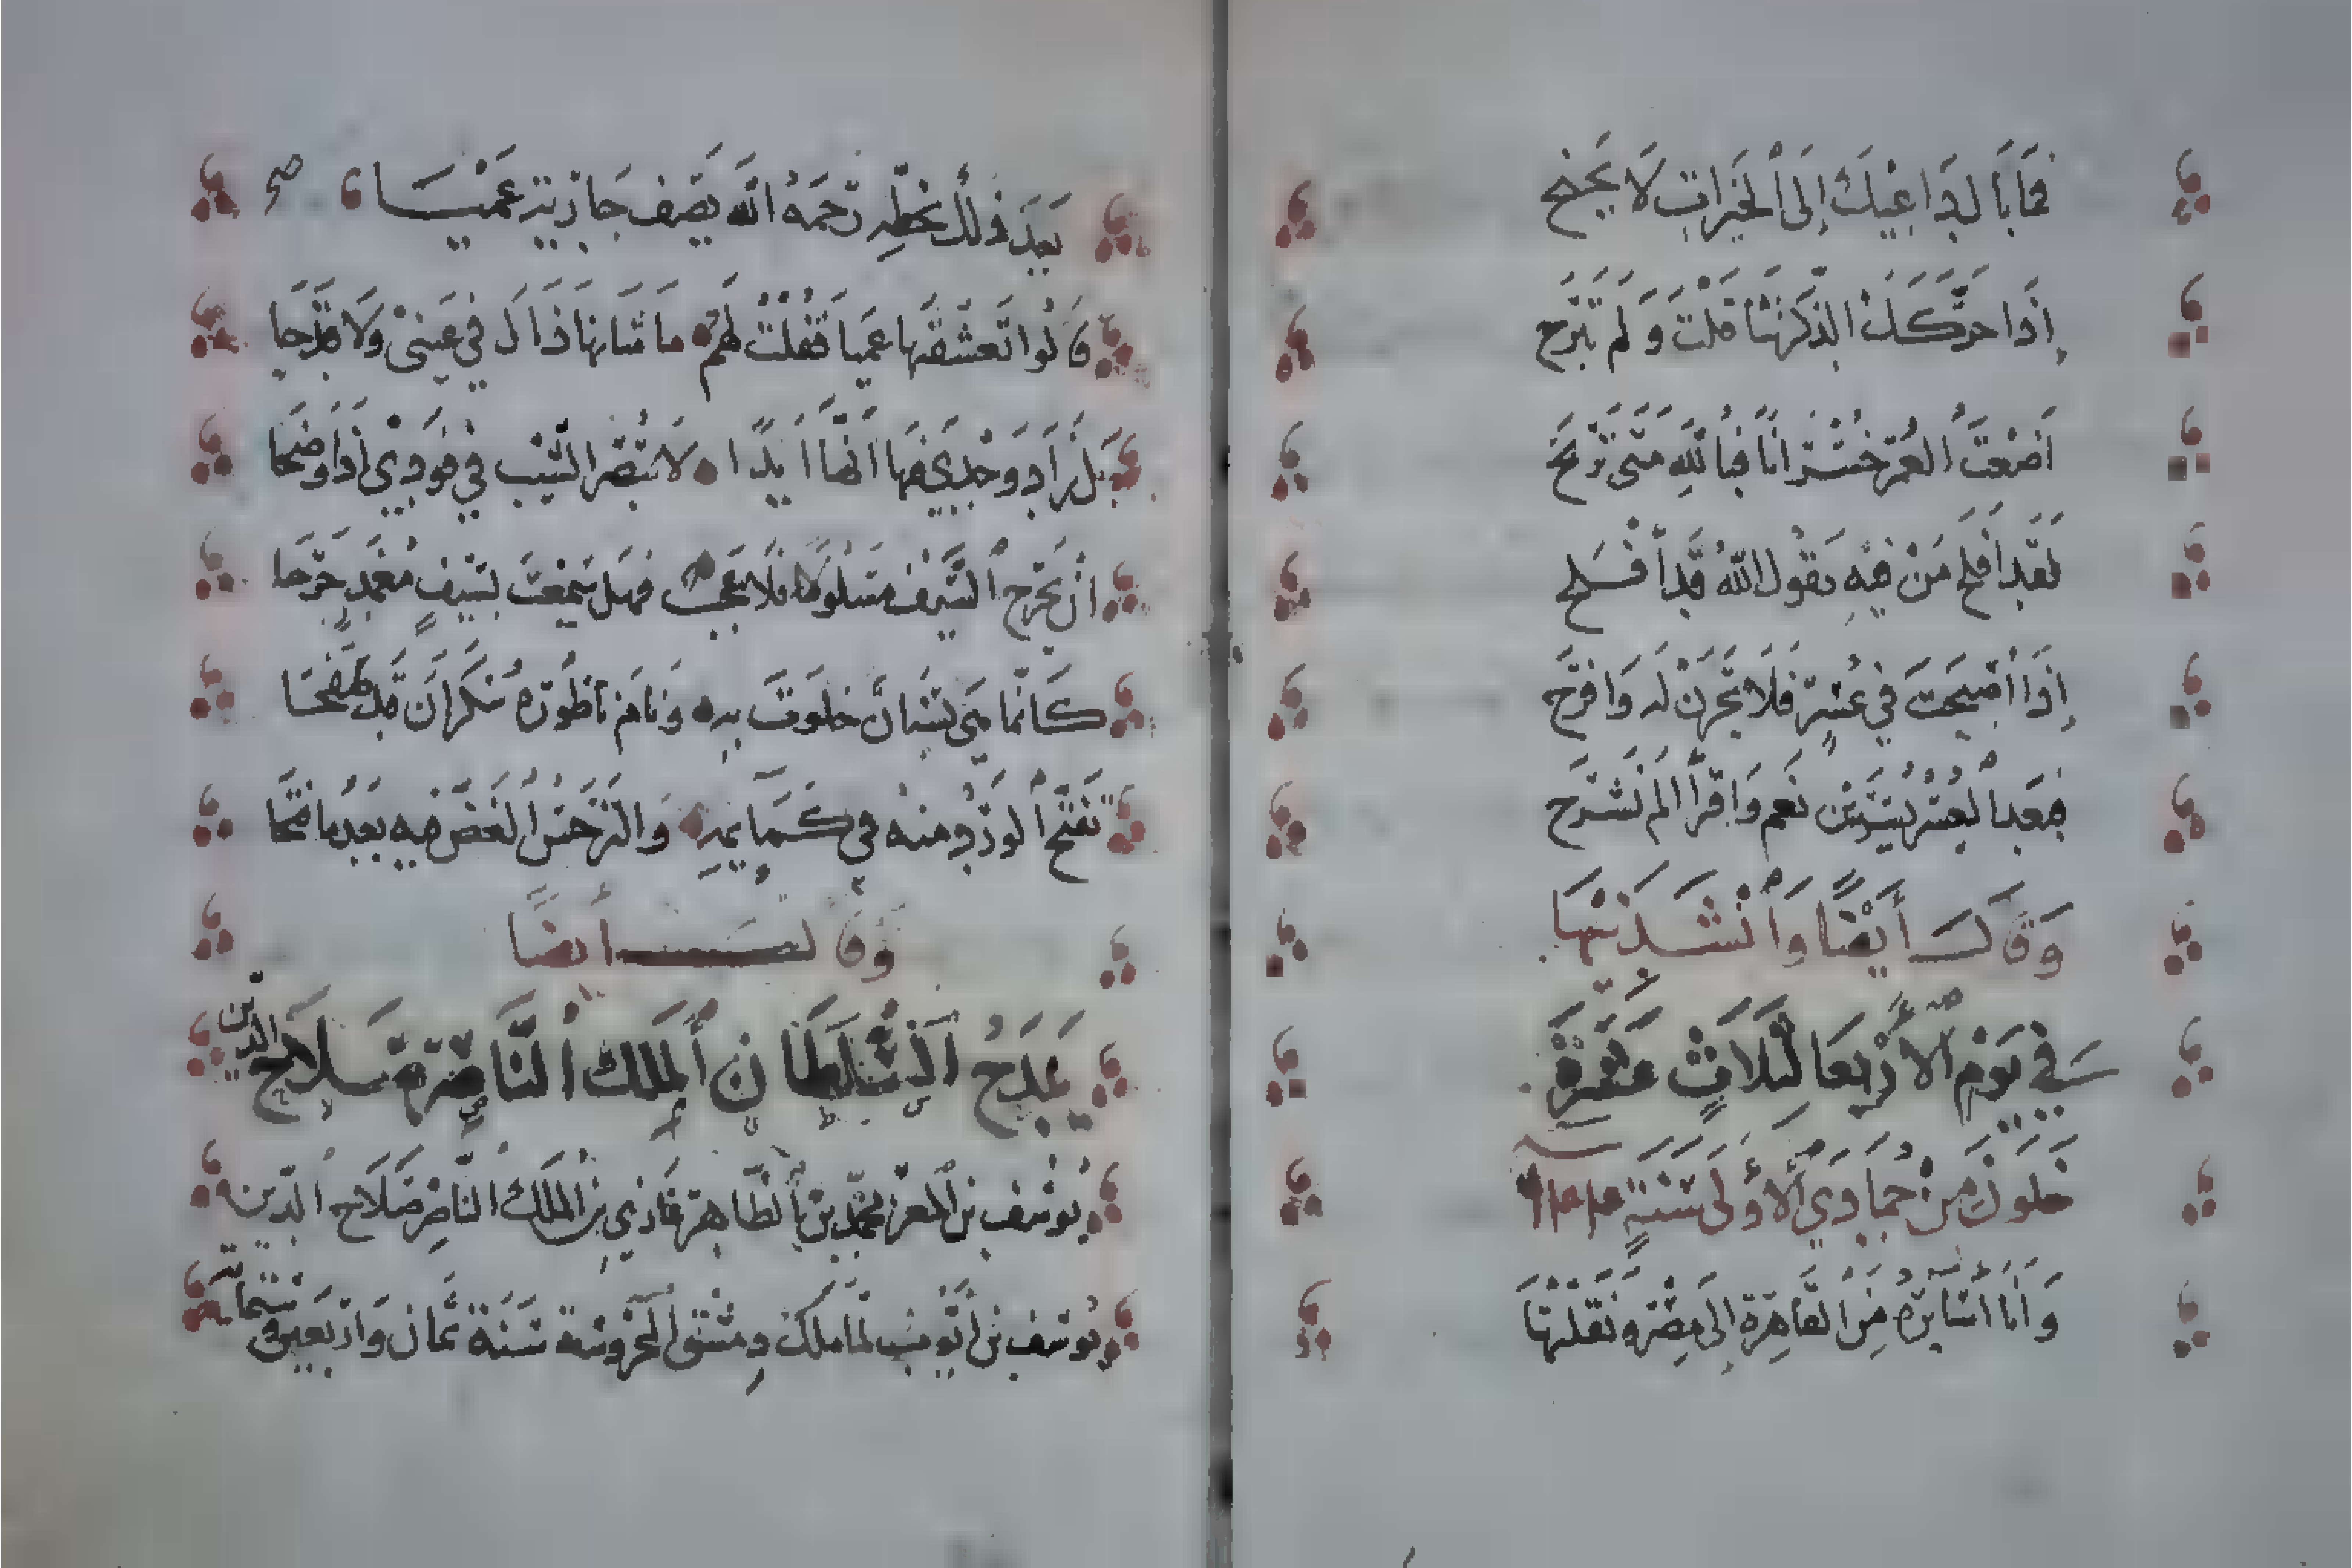 فما بال دواعيك إلى الخيرات لا يجنح
إذا حركك الذكرى تأقلت ولم تبرح
أضعت العمر خسرانا فبالله متى تربح
لقد أفلح من فيه يقول الله قد أفلح
إذا أصبحت في عسر فلا تحزن له وافرح
فبعد العسر يسر نعم واقرأ ألم نشرح
وقال أيضا وأنشدنيها
في يوم الأربعا لثلاث عشرة
خلون من جمادي الأولى سنة
وأنا أسايره من القاهرة إلى مصر ونقلتها
بعد ذلك بخطه رحمه الله يصف جارية عميا صح
قالوا تعشقتها عميا فقلت لهم ما شانها ذاك في عيني ولا قدحا
بل زاد وجدي فيها أنها أبدا لا تبصر الشيب في فودي إذا وضحا
أن يجرح السيف مسلولا فلا عجب فهل سمعت بسيف مغمد جرحا
كأنما هي بستان خلوت به ونام ناظوره سكران قد طفحا
تفتح الورد منه في كمايمه والنرجس الغض فيه بعد ما فتحا
وقال أيضا
يمدح السلطان الملك الناصر صلاح الدين بن
يوسف بن العزيز محمد بن الظاهر غازي بن الملك الناصر صلاح الدين
يوسف بن أيوب لما ملك دمشق المحروسة سنة ثمان وأربعين وستماية